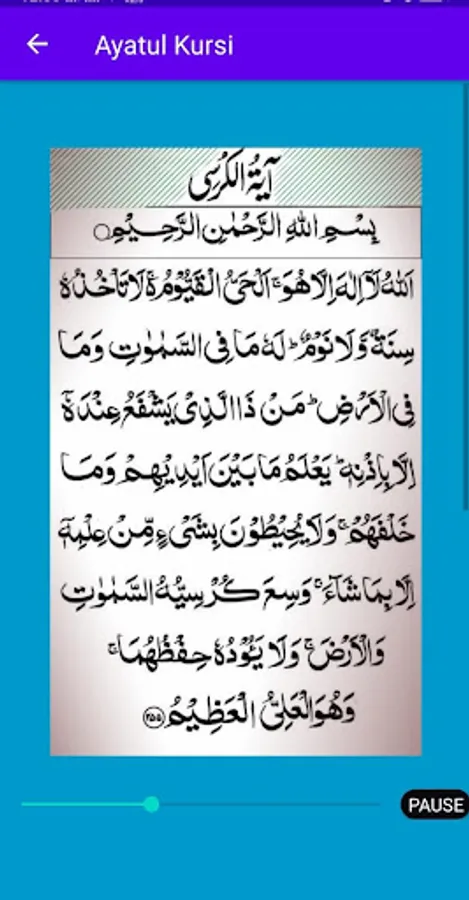 Ayatul Kursi
آيَةُ الْكُرْسِى
بِسْمِ اللهِ الرَّحْمٰنِ الرَّحِيْمِ
اَللهُ لَآ اِلٰهَ اِلَّا هُوَ ۚ اَلْحَىُّ الْقَيُّوْمُ ۚ لَا تَاْخُذُهٗ
سِنَةٌ وَّلَا نَوْمٌ ؕ لَهٗ مَا فِى السَّمٰوٰتِ وَمَا
فِى الْاَرْضِ ؕ مَنْ ذَا الَّذِىْ يَشْفَعُ عِنْدَهٗۤ
اِلَّا بِاِذْنِهٖ ؕ يَعْلَمُ مَا بَيْنَ اَيْدِيْهِمْ وَمَا
خَلْفَهُمْ ۚ وَلَا يُحِيْطُوْنَ بِشَىْءٍ مِّنْ عِلْمِهٖۤ
اِلَّا بِمَا شَآءَ ۚ وَسِعَ كُرْسِيُّهُ السَّمٰوٰتِ
وَالْاَرْضَ ۚ وَلَا يَـُٔوْدُهٗ حِفْظُهُمَا ۚ
وَهُوَ الْعَلِىُّ الْعَظِيْمُ ﴿۲۵۵﴾
PAUSE